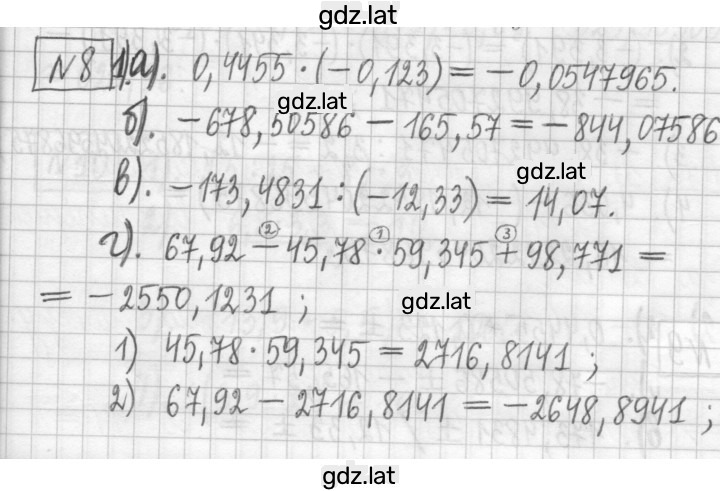 gdz.lat
№8 1)а). 0,4455 · (−0,123) = −0,0547965.
gdz.lat
б). −678,50586 − 165,57 = −844,07586
gdz.lat
в). −173,4831 : (−12,33) = 14,07.
② ① ③
г). 67,92 − 45,78 · 59,345 + 98,771 =
= −2550,1231 ;
gdz.lat
1) 45,78 · 59,345 = 2716,8141 ;
2) 67,92 − 2716,8141 = −2648,8941 ;
gdz.lat